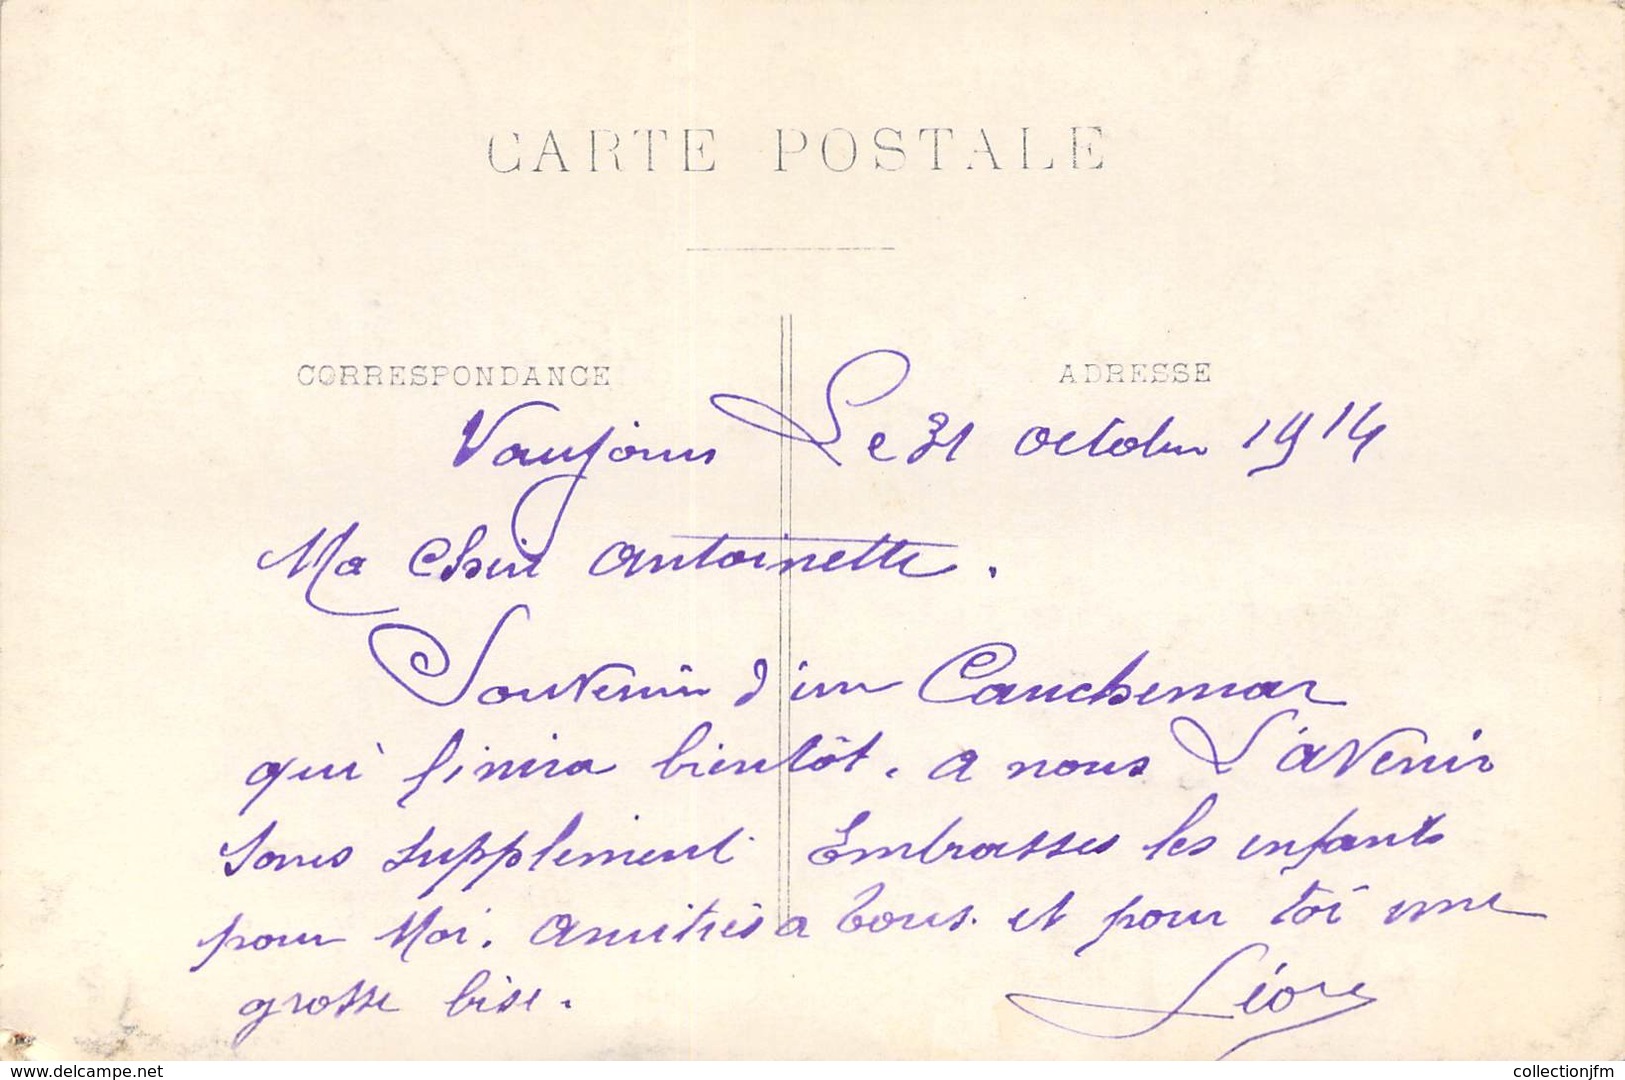 CARTE POSTALE
CORRESPONDANCE ADRESSE
Vaujours Le 31 octobre 1914
Ma Chère Antoinette.
Souvenir d'un Cauchemar
qui finira bientôt. a nous L'avenir
sans supplement. Embrasses les enfants
pour Moi. Amitiés a tous. et pour toi une
grosse bise. Léon
delcampe.net collectionjfm